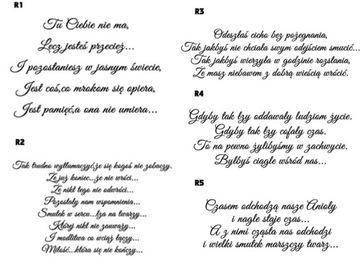 R1
Tu Ciebie nie ma,
Lecz jesteś przecież...
I pozostaniesz w jasnym świecie,
Jest coś,co mrokom się opiera,
Jest pamięć,a ona nie umiera...
R2
Tak trudno wytłumaczyć,że się kogoś nie zobaczy,
Że już koniec...że nie wróci...
Że nikt tego nie odwróci...
Pozostały nam wspomnienia...
Smutek w sercu...łza na twarzy...
Której nikt nie zauważy...
I modlitwa co wciąż łączy...
Miłość...która się nie kończy...
R3
Odeszłaś cicho bez pożegnania,
Tak jakbyś nie chciała swym odejściem smucić...
Tak jakbyś wierzyła w godzinie rozstania,
Że masz niebawem z dobrą wieścią wrócić.
R4
Gdyby tak łzy oddawały ludziom życie.
Gdyby tak łzy cofały czas.
To na pewno żylibyśmy w zachwycie.
Byłbyś ciągle wśród nas...
R5
Czasem odchodzą nasze Anioły
i nagle staje czas...
A z nimi cząsta nas odchodzi
i wielki smutek marszczy twarz...